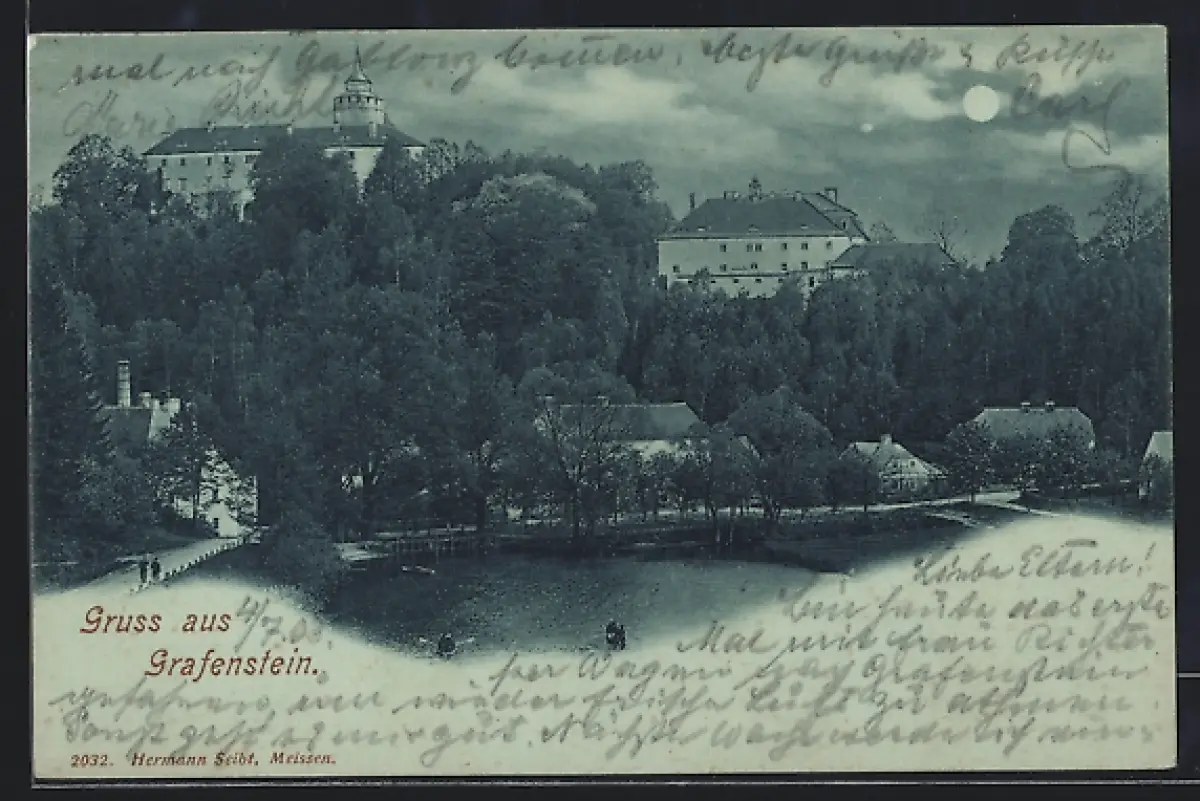 mal nach Gablonz kommen. Beste Grüße & Küsse
Marie Richter Carl
Liebe Eltern!
Bin heute das erste
Gruss aus 4/7.00.
Mal mit Frau Richter
Grafenstein.
per Wagen nach Grafenstein
gefahren, um wieder frische Luft zu athmen.
Sonst geht es mir gut. Nächste Woche werde ich ein-
2032. Hermann Seibt, Meissen.